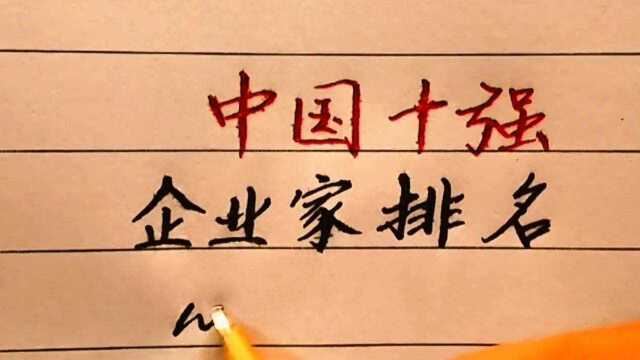 中国十强
企业家排名